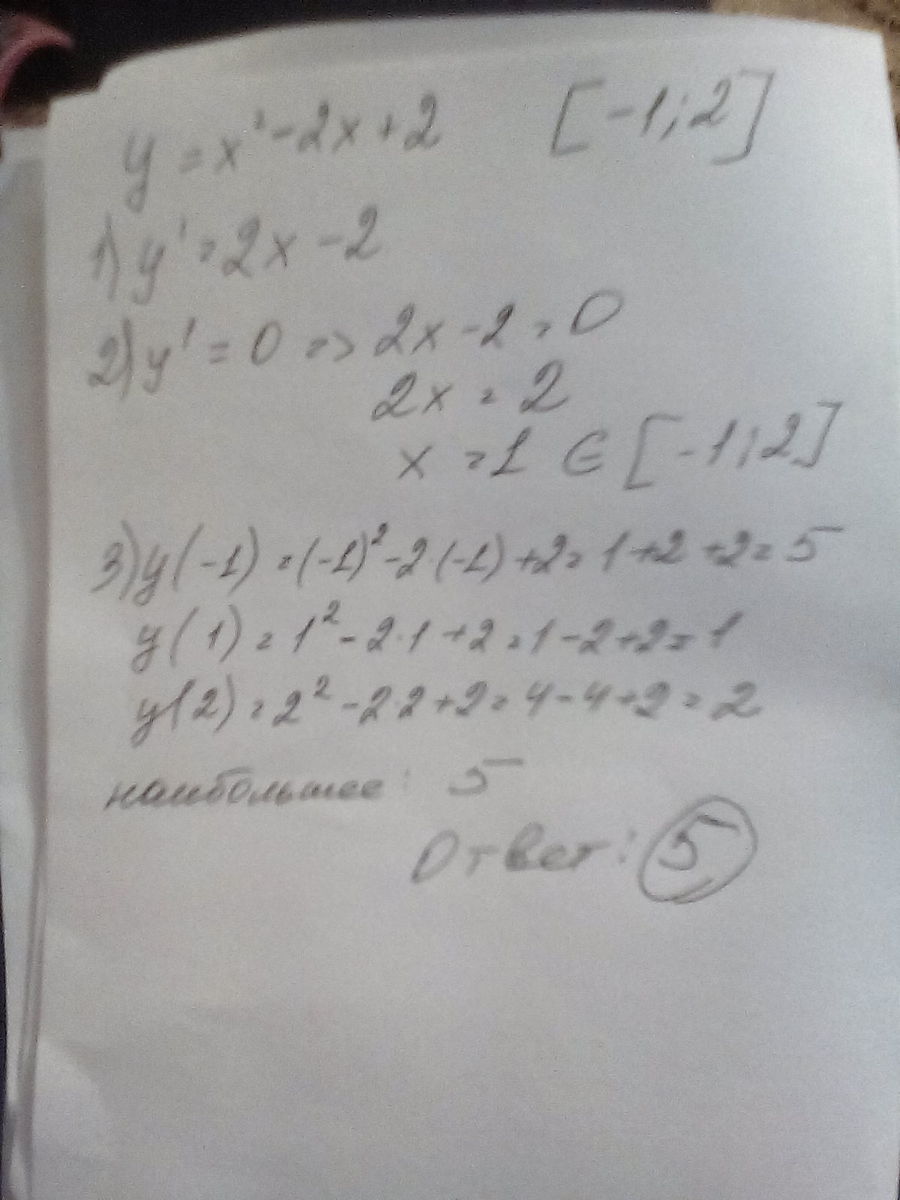 y = x² - 2x + 2 [-1; 2]
1) y' = 2x - 2
2) y' = 0 => 2x - 2 = 0
2x = 2
x = 1 ∈ [-1; 2]
3) y(-1) = (-1)² - 2·(-1) + 2 = 1 + 2 + 2 = 5
y(1) = 1² - 2·1 + 2 = 1 - 2 + 2 = 1
y(2) = 2² - 2·2 + 2 = 4 - 4 + 2 = 2
наибольшее: 5
Ответ: 5